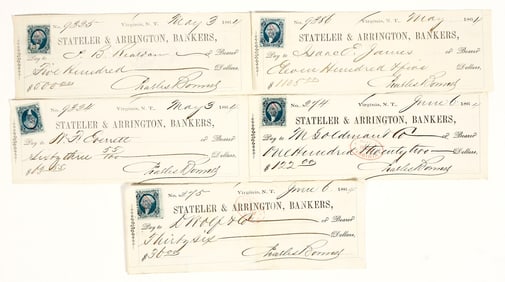 No. 9335 Virginia, N. T. May 3 1864
STATELER & ARRINGTON, BANKERS,
Pay to or Bearer
Five Hundred Dollars,
Charles Bonner
Virginia, N. T. May 186
STATELER & ARRINGTON, BANKERS,
Pay to Isaac E. James or Bearer
Hundred Dollars,
Charles Bonner
No. 9334 Virginia, N. T. May 3 1864
STATELER & ARRINGTON, BANKERS,
Pay to W. F. Everett or Bearer
Sixty three 55/100 Dollars,
Charles Bonner
No. 274 Virginia, N. T. June 6 186
STATELER & ARRINGTON, BANKERS,
Pay to M Goldman & Co or Bearer
One Hundred & Twenty two Dollars,
$122.00 Charles Bonner
No. 275 Virginia, N. T. June 6 186
STATELER & ARRINGTON, BANKERS,
Pay to Wolf & Co or Bearer
Thirty six Dollars,
$36.00 Charles Bonner